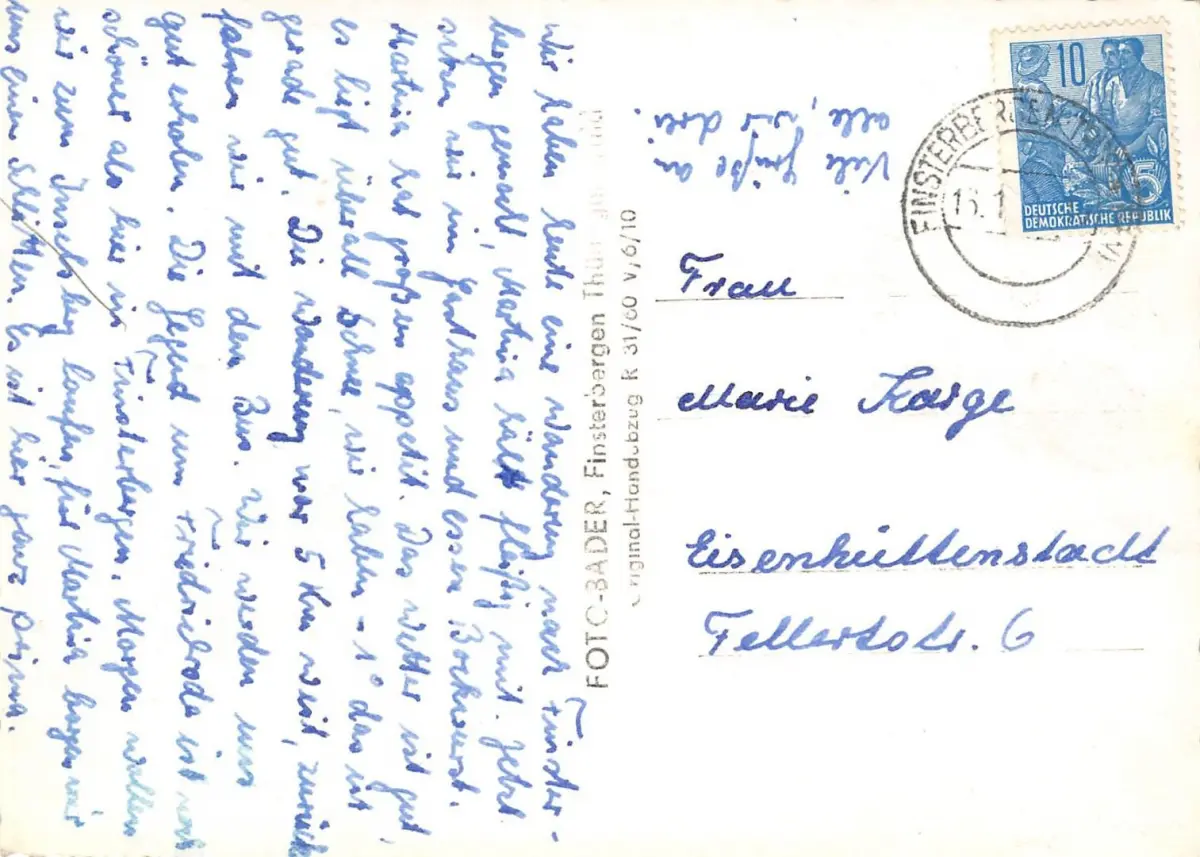 Wir haben heute eine Wanderung nach Finster-
bergen gemacht, Martina hält fleißig mit. Jetzt
sitzen wir im Gasthaus und essen Bockwurst.
Martina hat großen appetit. Das Wetter ist gut
es liegt überall Schnee, wir haben -1° das ist
gerade gut. Die Wanderung war 5 Km weit, zurück
fahren wir mit dem Bus. Wir werden uns
gut erholen. Die Gegend um Friedrichroda ist noch
schöner als hier in Finsterbergen. Morgen wollen
wir zum Inselsberg laufen, für Martina borgen wir
uns einen Schlitten. Es ist hier ganz prima.
Viele Grüße an
alle, wir drei.
FOTO-BADER, Finsterbergen
Original-Handabzug R 31/60 V,6/10
10
5
DEUTSCHE
DEMOKRATISCHE REPUBLIK
FINSTERBERGEN
Frau
Marie Karge
Eisenhüttenstadt
Fellertstr. 6